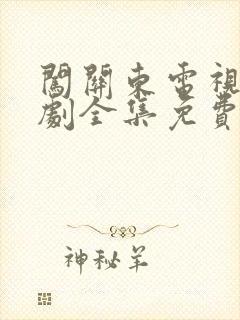 闖關東電視
劇全集免費
神秘羊